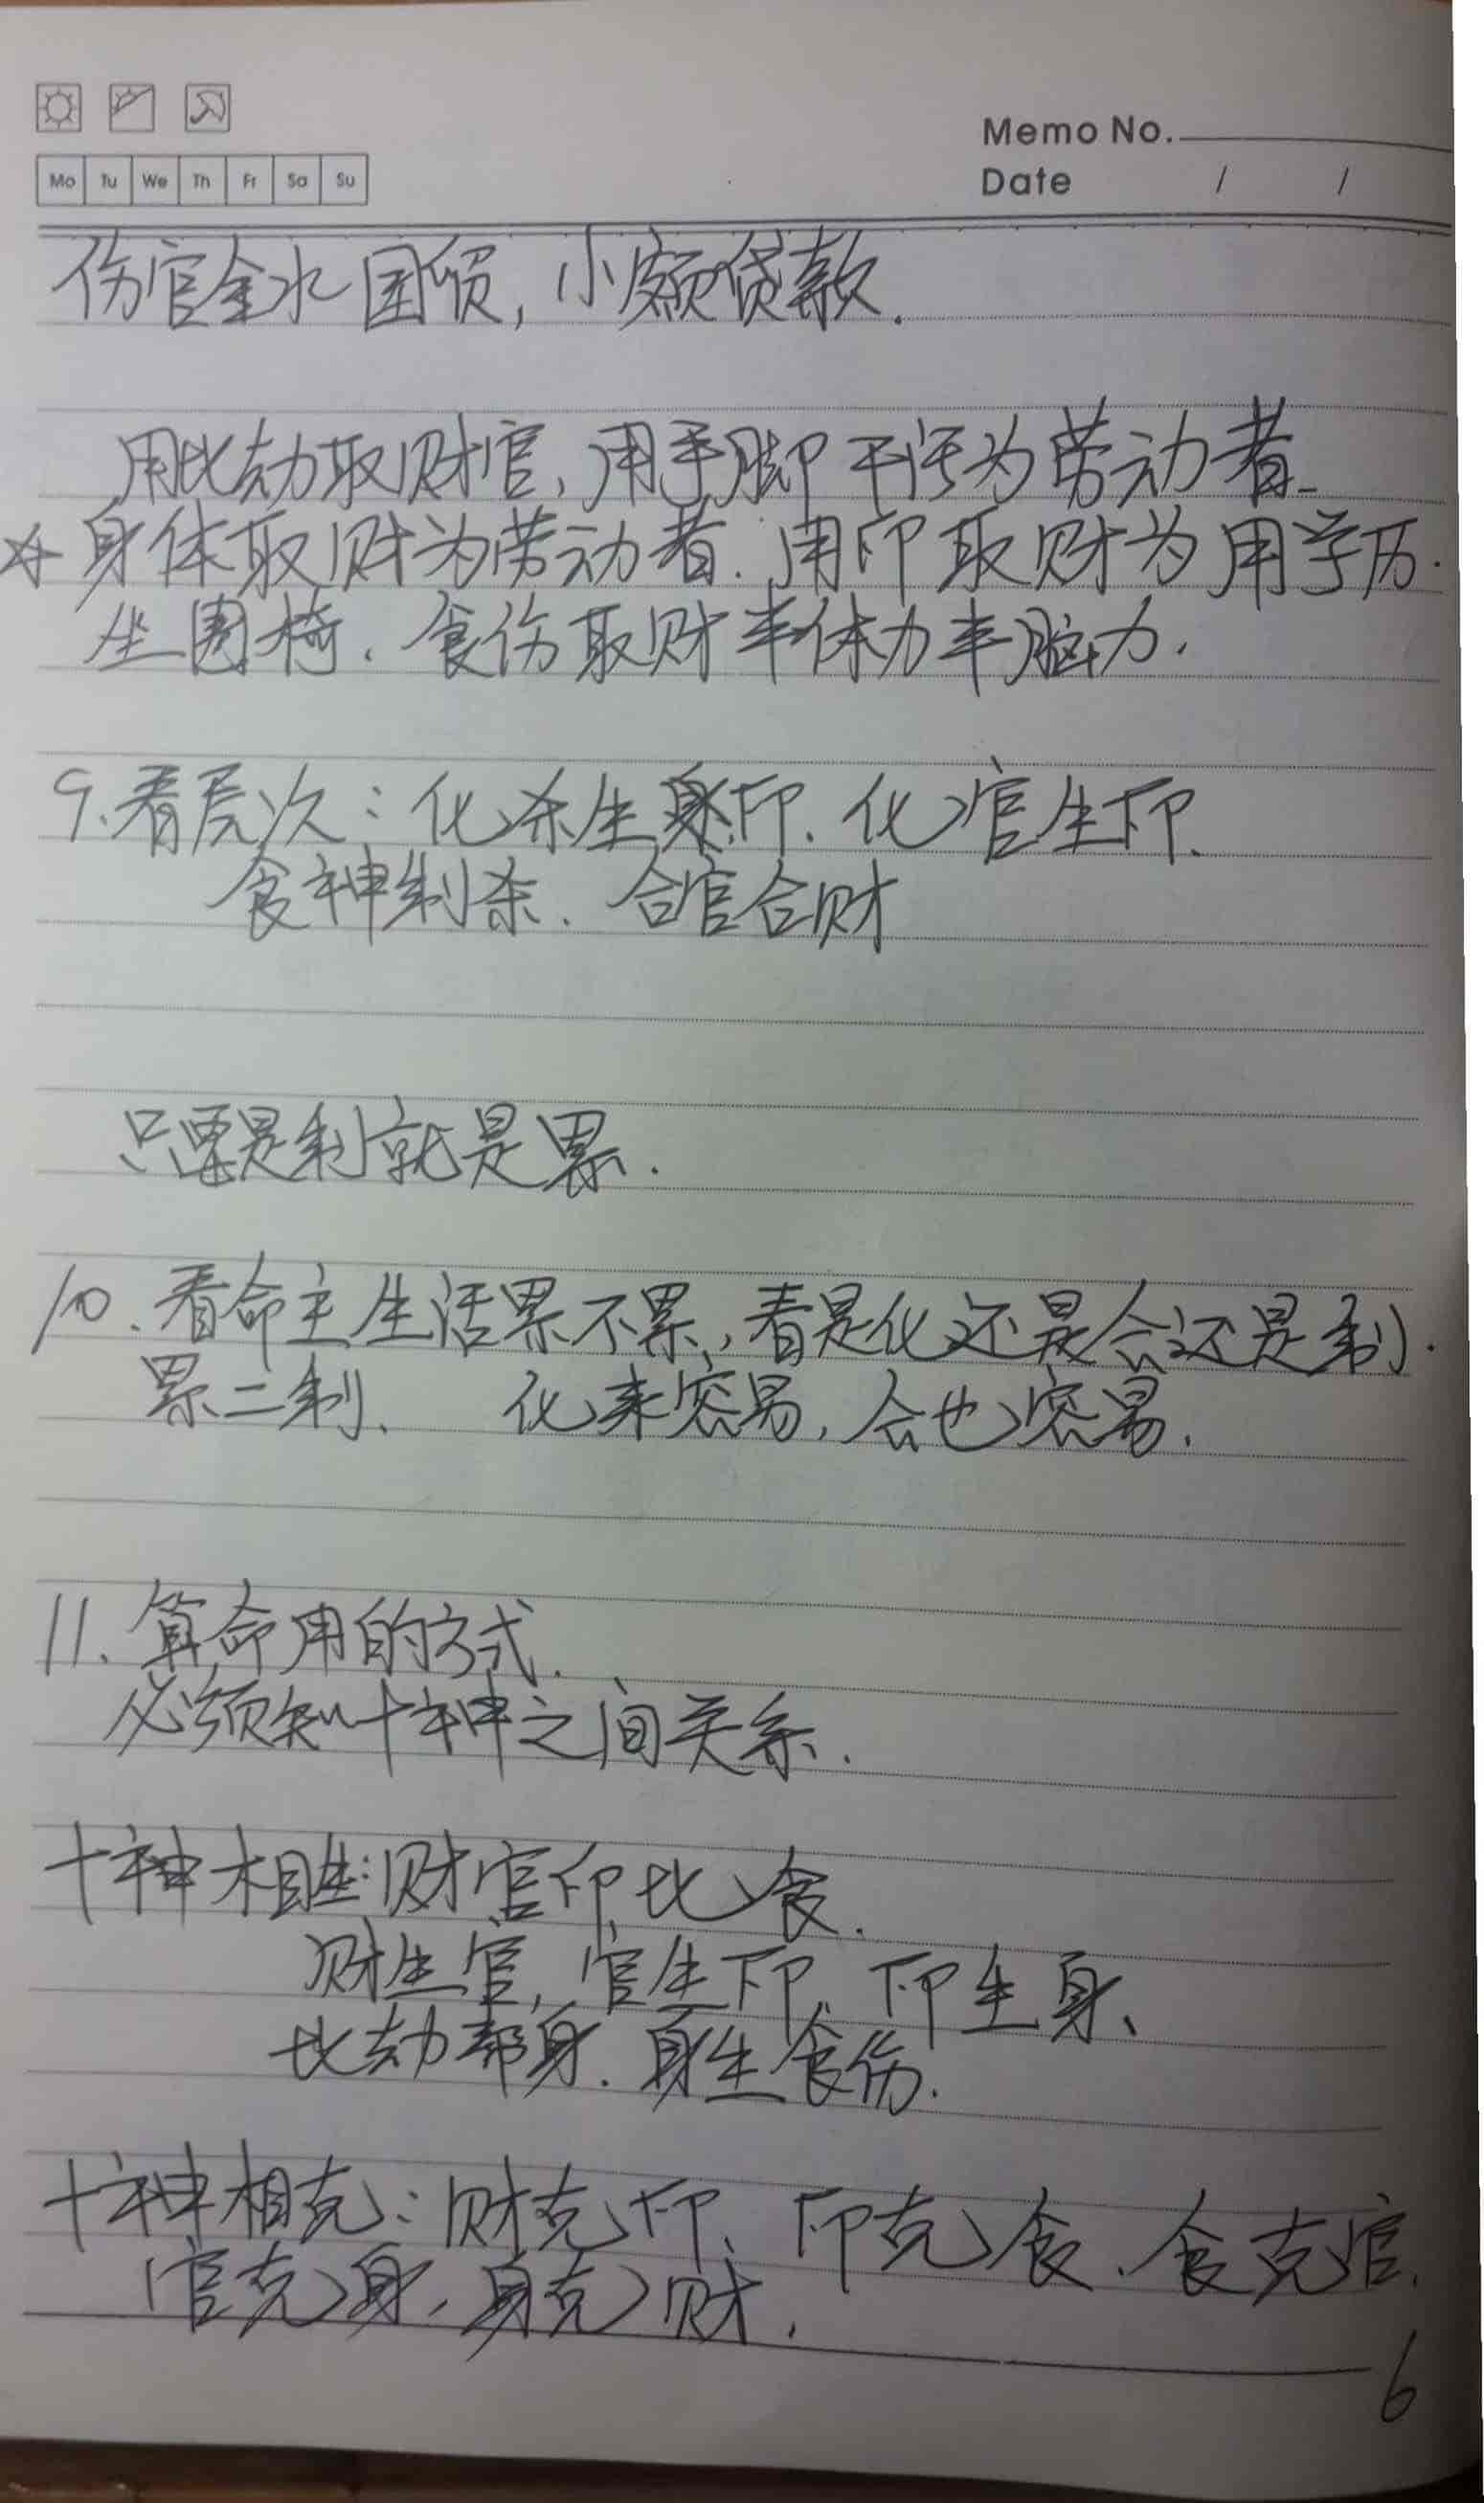 Memo No.
Mo Tu We Th Fr Sa Su
Date / /
伤官金水团贷,小额贷款.
用比劫取财官,用手脚干活为劳动者.
☆身体取财为劳动者.用印取财为用学历.
坐圈椅.食伤取财半体力半脑力.
9.看层次:化杀生身印.化官生印.
食神制杀.合官合财
只要是制就是累.
10.看命主生活累不累,看是化还是合还是制.
累二制. 化来容易,合也容易.
11.算命用的方式.
必须知十神之间关系.
十神相生:财官印比食.
财生官,官生印,印生身、
比劫帮身.身生食伤.
十神相克:财克印、印克食.食克官.
官克身,身克财.
6